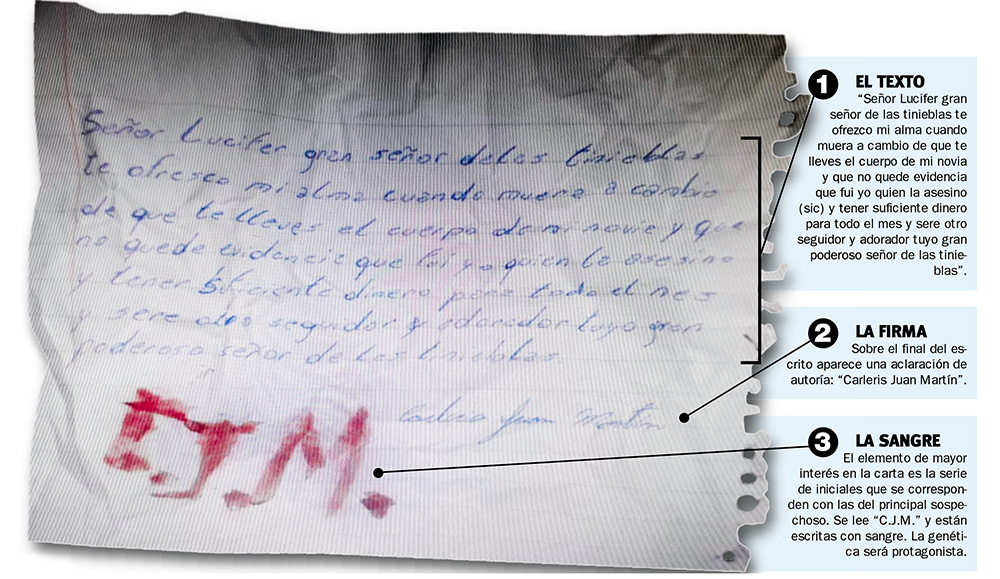 Señor Lucifer gran señor delas tinieblas
te ofresco mi alma cuando muera a cambio
de que te lleves el cuerpo de mi novia y que
no quede evidencia que fui yo quien la asesino
y tener suficiente dinero para todo el mes
y sere otro seguidor y adorador tuyo gran
poderoso señor de las tinieblas
Juan Martin
CJM.
1 EL TEXTO
“Señor Lucifer gran
señor de las tinieblas te
ofrezco mi alma cuando
muera a cambio de que te
lleves el cuerpo de mi novia
y que no quede evidencia
que fui yo quien la asesino
(sic) y tener suficiente dinero
para todo el mes y sere otro
seguidor y adorador tuyo gran
poderoso señor de las tinie-
blas”.
2 LA FIRMA
Sobre el final del es-
crito aparece una aclaración de
autoría: “Carleris Juan Martín”.
3 LA SANGRE
El elemento de mayor
interés en la carta es la serie
de iniciales que se correspon-
den con las del principal sospe-
choso. Se lee “C.J.M.” y están
escritas con sangre. La genéti-
ca será protagonista.